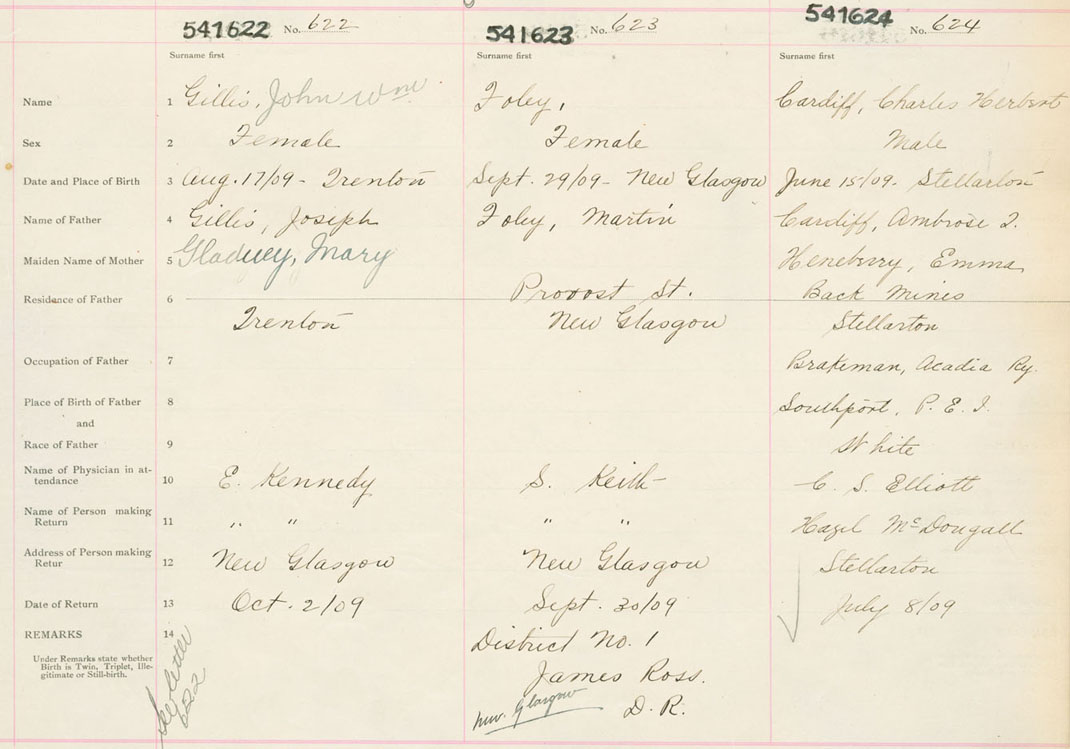 541622 No. 622 541623 No. 623 541624 No. 624
Surname first Surname first Surname first
Name 1 Gillis, John Wm Foley, Cardiff, Charles Herbert
Sex 2 Female Female Male
Date and Place of Birth 3 Aug. 17/09 - Trenton Sept. 29/09 - New Glasgow June 15/09. Stellarton
Name of Father 4 Gillis, Joseph Foley, Martin Cardiff, Ambrose J.
Maiden Name of Mother 5 Mary Heneberry, Emma
Residence of Father 6 Provost St. Back Mines
Trenton New Glasgow Stellarton
Occupation of Father 7 Brakeman, Acadia Ry.
Place of Birth of Father 8 Southport, P. E. I.
and
Race of Father 9 White
Name of Physician in at-
tendance 10 E. Kennedy S. Keith C. S. Elliott
Name of Person making
Return 11 " " " " Hazel McDougall
Address of Person making
Retur 12 New Glasgow New Glasgow Stellarton
Date of Return 13 Oct. 2/09 Sept. 30/09 July 8/09
REMARKS 14 District No. 1
Under Remarks state whether
Birth is Twin, Triplet, Ille-
gitimate or Still-birth.
James Ross.
D. R.
New Glasgow
See letter
622